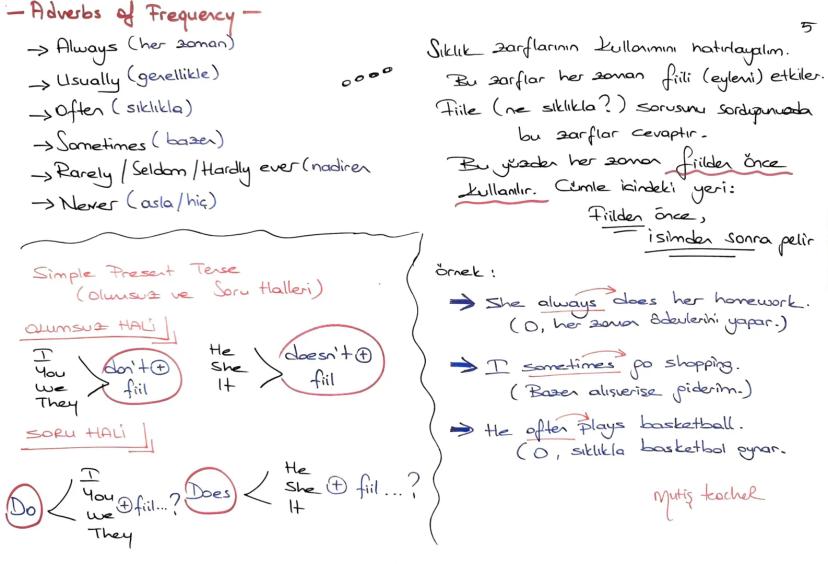 - Adverbs of Frequency -
→ Always (her zaman)
→ Usually (genellikle)
→ Often (sıklıkla)
→ Sometimes (bazen)
→ Rarely / Seldom / Hardly ever (nadiren
→ Never (asla/hiç)
Simple Present Tense
(Olumsuz ve Soru Halleri)
OLUMSUZ HALİ
I
You
We
They
don't +
fiil
He
She
It
doesn't +
fiil
SORU HALİ
Do
I
You
We
They
+ fiil...?
Does
He
She
It
+ fiil ...?
5
Sıklık zarflarının kullanımını hatırlayalım.
Bu zarflar her zaman fiili (eylemi) etkiler.
Fiile (ne sıklıkla?) sorusunu sorduğumuzda
bu zarflar cevaptır.
Bu yüzden her zaman fiilden önce
kullanılır. Cümle içindeki yeri:
Fiilden önce,
isimden sonra gelir
örnek :
→ She always does her homework.
(O, her zaman ödevlerini yapar.)
→ I sometimes go shopping.
(Bazen alışverişe giderim.)
→ He often plays basketball.
(O, sıklıkla basketbol oynar.
Mutiş teacher